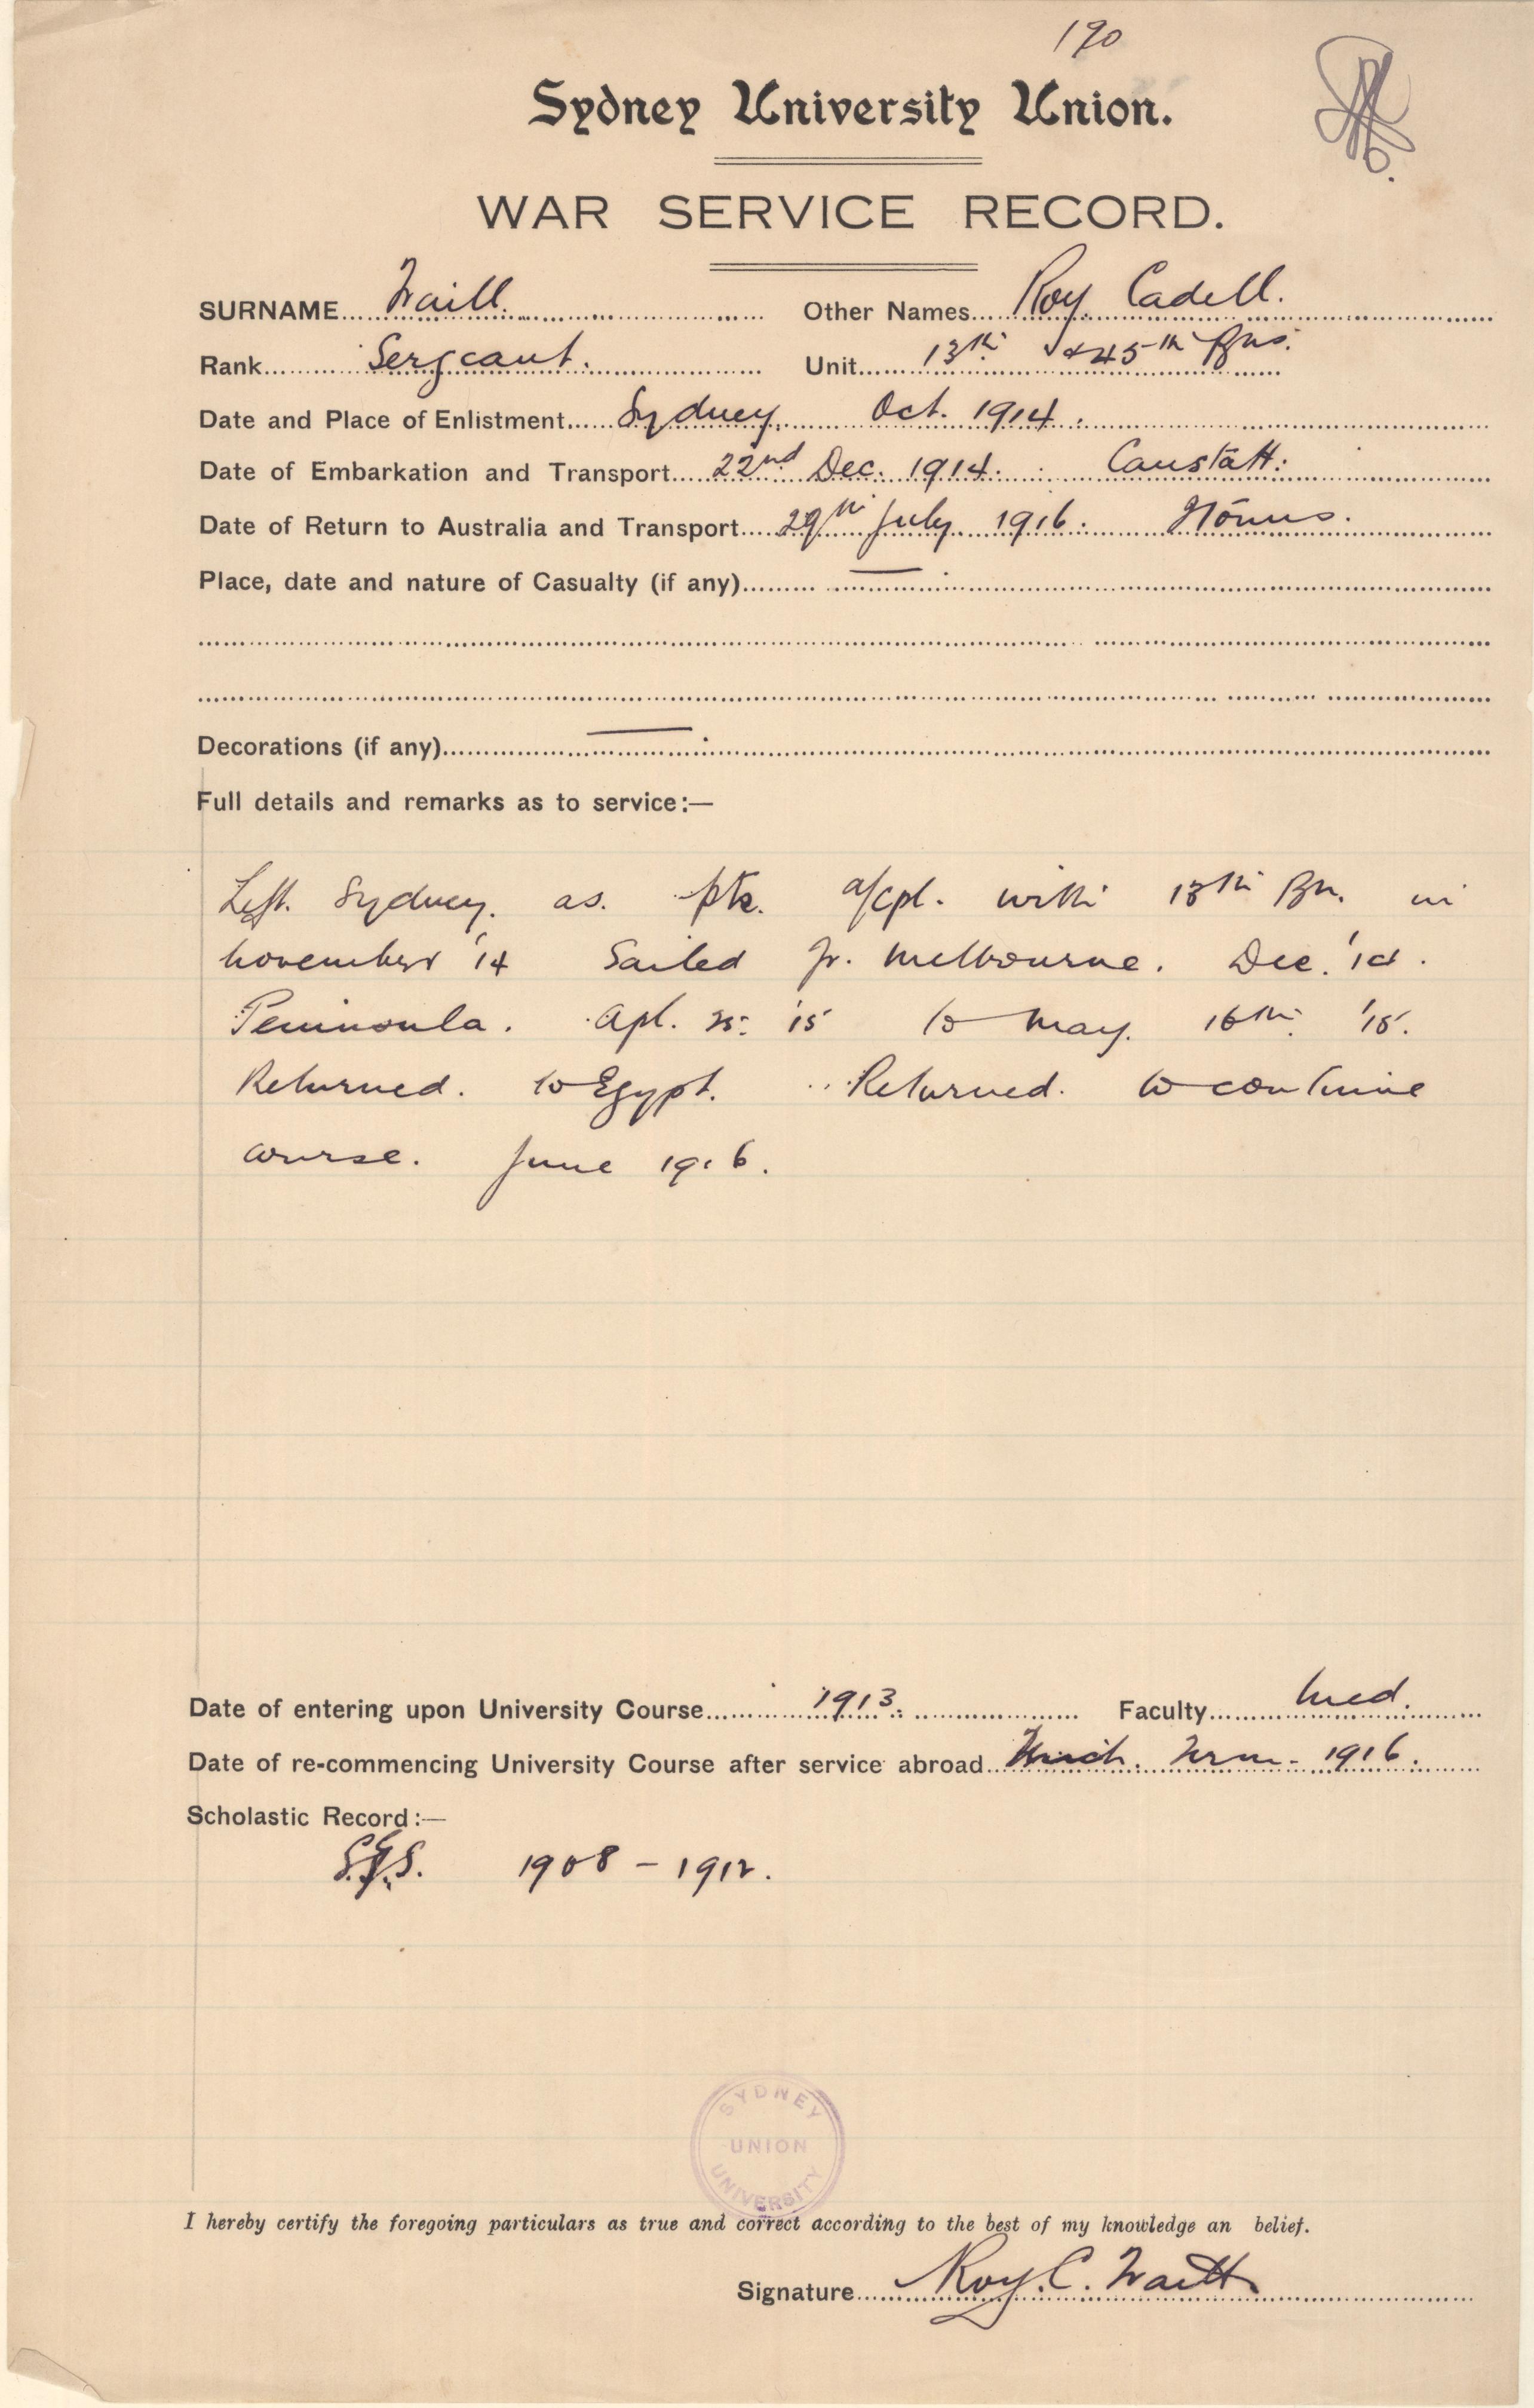 190
Sydney University Union.
WAR SERVICE RECORD.
SURNAME Traill. Other Names Roy Cadell.
Rank Sergeant. Unit 13th & 45th Bns.
Date and Place of Enlistment Sydney. Oct. 1914.
Date of Embarkation and Transport 22nd Dec. 1914. Canstatt.
Date of Return to Australia and Transport 29th July 1916.
Place, date and nature of Casualty (if any) —
Decorations (if any) —
Full details and remarks as to service:—
Left. Sydney. as. pte. a/cpl. with 13th Bn. in
November '14 Sailed fr. Melbourne. Dec. '14.
Peninsula. Apl. 25. '15 to May. 16th. '15.
Returned. to Egypt. Returned. to continue
course. June 1916.
Date of entering upon University Course 1913. Faculty Med.
Date of re-commencing University Course after service abroad Term. 1916.
Scholastic Record:—
S.G.S. 1908 - 1912.
SYDNEY
UNION
UNIVERSITY
I hereby certify the foregoing particulars as true and correct according to the best of my knowledge an belief.
Signature Roy. C. Traill